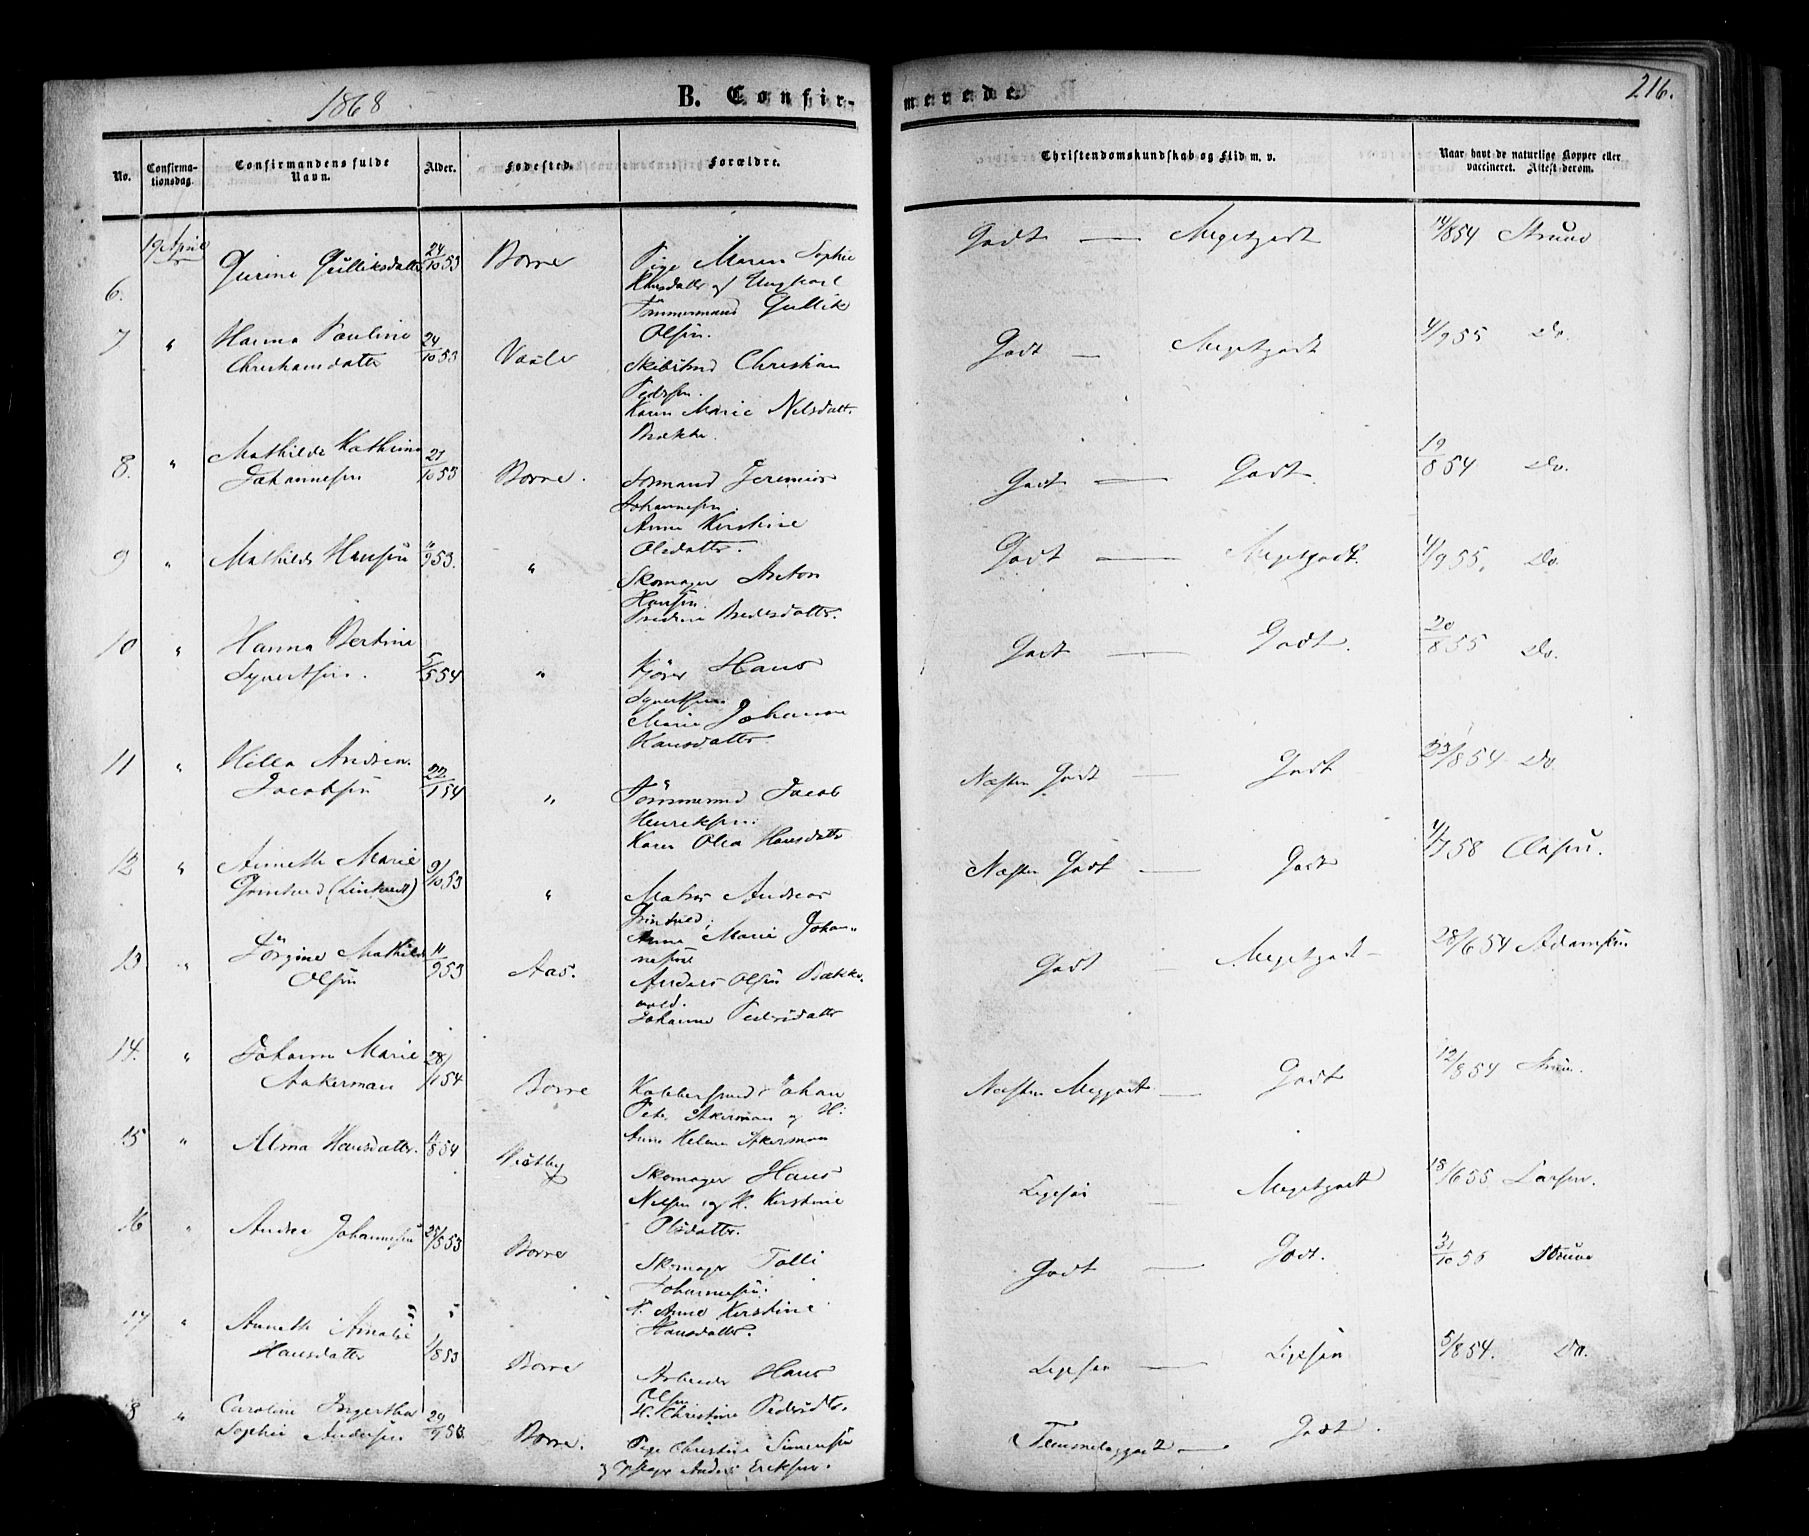 1868 B. Confirmerede. 216.
No. Confirmationsdag. Confirmandens fulde Navn. Alder. Fødested. Forældre. Christendomskundskab og Flid m. v. Naar havt de naturlige Kopper eller vaccineret. Attest derom.
19 April
6. Gulliksdatter 24/10 53 Borre Pige Maren Sophie
Hansdatter og Ungkarl
Tømmermand Gullik
Olsen.
Godt — Megetgodt 14/8 54 Struve
7 " Hanna Pauline
Christiansdatter 24/10 53 Vaale Skibstmd Christian
Pedersen.
Karen Marie Nilsdatt.
Bakke.
Godt — Megetgodt 4/9 55 Do.
8. " Mathilde Kathrine
Johannesen 21/10 53 Borre. Formand Jeremias
Johannesen.
Anne Kirstine
Olsdatter.
Godt — Godt. 19/8 54 Do.
9 " Mathilde Hansen 11/9 53. " Skomager Anton
Hansen.
Godt — Megetgodt. 4/9 55. Do.
10 " Hanna Bertine
Syvertsen. 5/5 54 " Kjører Hans
Syvertsen
Marie Johanne
Hansdatter.
Godt — Godt. 20/8 55 Do.
11 " Hilla Andrea
Jacobsen 22/1 54 " Tømmermd Jacob
Henriksen.
Karen Olea Hansdatter
Næsten Godt — Godt 23/8 54 Do.
12 " Annette Marie
9/10 53 " Matros Andreas
Anna Marie Johan-
nesen
Næsten Godt — Godt 4/7 58 Olsen.
13 " Jørgine Mathilde
Olsen 11/9 53 Aas. Anders Olsen Bakke-
vold.
Johanne Pedersdatter
Godt — Megetgodt — 28/6 54 Adamsen
14. " Johanne Marie
Aakerman 28/1 54 Borre Johan
Peter Akerman og H.
Anne Helene Akerman
Næsten Meggodt — Godt 12/8 54 Struve.
15 " Alma Hansdatter. 11/8 54 Vestby Skomager Hans
Nilsen og H. Kirstine
Olsdatter.
Ligesaa — Megetgodt 18/6 55 Larsen.
16 " Andrea Johannesen 25/5 53 Borre Skomager Tolli
Johannesen.
H. Anne Kirstine
Hansdatter.
Godt — Godt. 31/10 55 Struve
17 " Annette Amalie
Hansdatter 1/8 53 Borre Arbeider Hans
Olsen
H. Christine Pedersdtr.
Ligesaa — Ligesaa 5/8 54. Do.
18 " Caroline Ingertha
Sophie Andersen 29/9 53 Borre. Pige Christine Simensen
og Anders Eriksen.
Temmeliggodt — Godt.